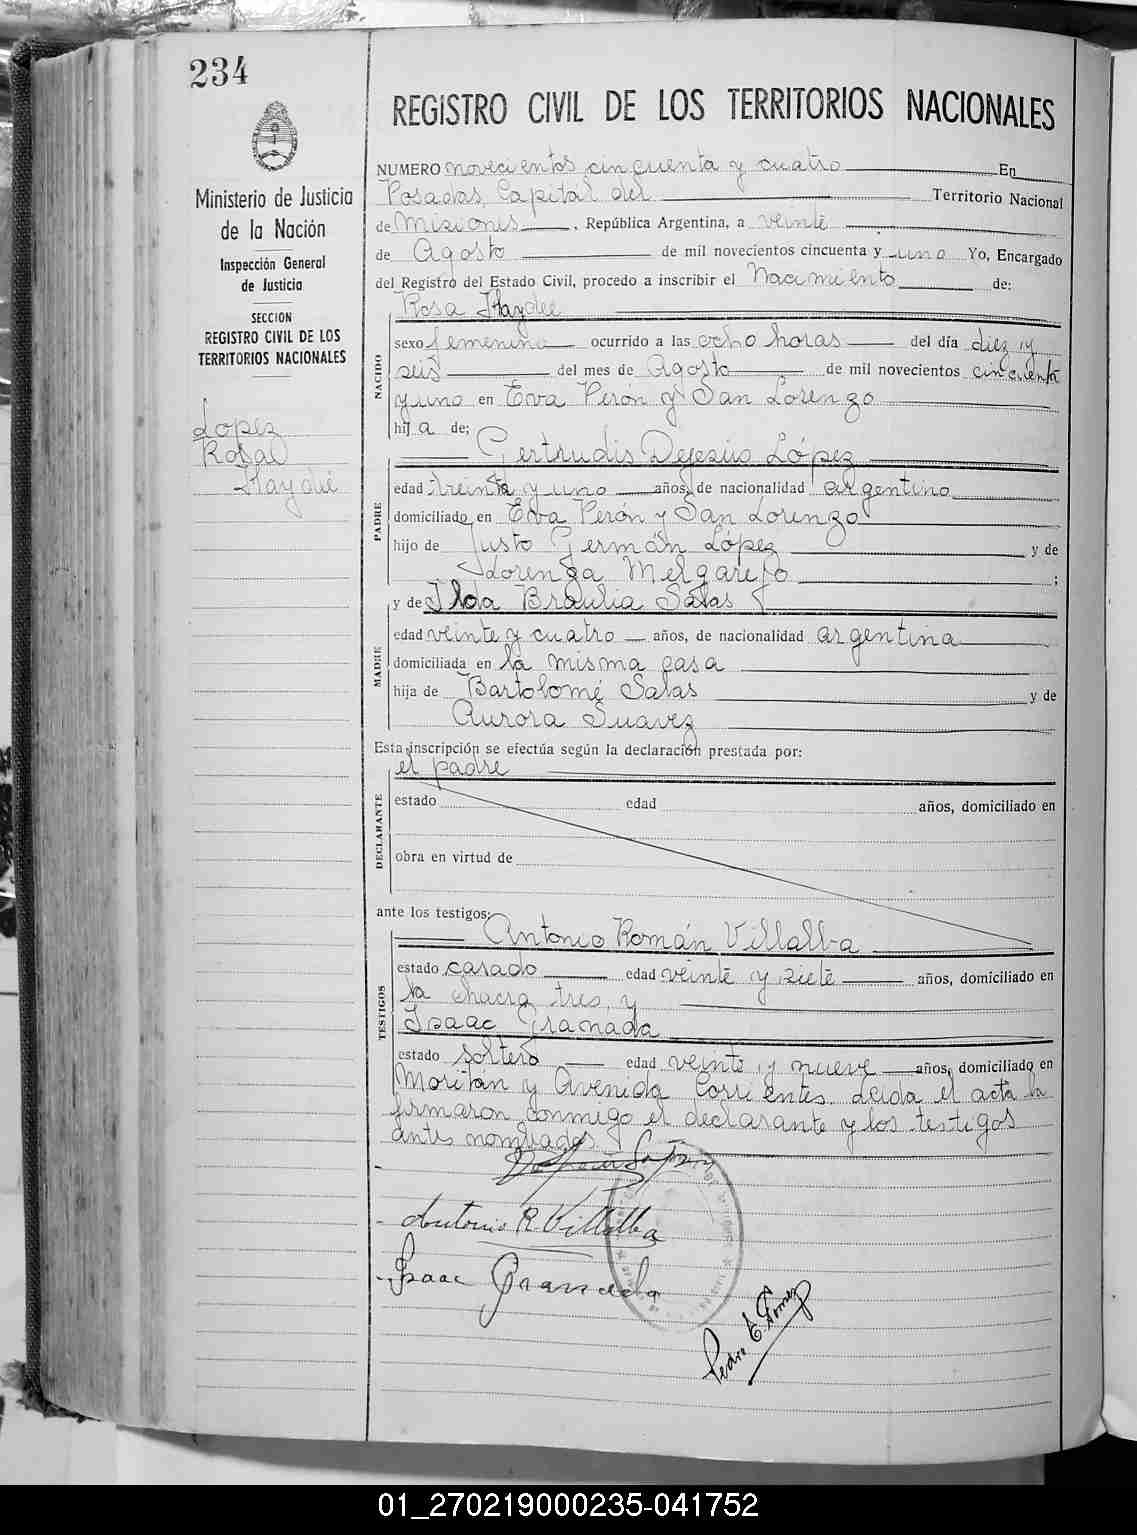 234
REGISTRO CIVIL DE LOS TERRITORIOS NACIONALES
Ministerio de Justicia
de la Nación
Inspección General
de Justicia
SECCION
REGISTRO CIVIL DE LOS
TERRITORIOS NACIONALES
Lopez
Rosa
Haydée
NUMERO novecientos cincuenta y cuatro En
Posadas, Capital del Territorio Nacional
de Misiones, República Argentina, a veinte
de Agosto de mil novecientos cincuenta y uno Yo, Encargado
del Registro del Estado Civil, procedo a inscribir el Nacimiento de:
Rosa Haydée
NACIDO
sexo femenino ocurrido a las ocho horas del día diez y
seis del mes de Agosto de mil novecientos cincuenta
y uno en Eva Perón y San Lorenzo
hija de;
Gertrudis Dejesús López
PADRE
edad treinta y uno años, de nacionalidad argentino
domiciliado en Eva Perón y San Lorenzo
hijo de Justo Germán López y de
Lorenza Melgarejo ;
y de Ilda Braulia Salas
MADRE
edad veinte y cuatro años, de nacionalidad argentina
domiciliada en la misma casa
hija de Bartolomé Salas y de
Aurora Suavez
Esta inscripción se efectúa según la declaración prestada por:
el padre
DECLARANTE
estado edad años, domiciliado en
obra en virtud de
ante los testigos:
Antonio Román Villalba
TESTIGOS
estado casado edad veinte y siete años, domiciliado en
la chacra tres, y
Isaac Granada
estado soltero edad veinte y nueve años, domiciliado en
Moritán y Avenida Corrientes. Leida el acta la
firmaron conmigo el declarante y los testigos
antes nombrados.
Antonio R. Villalba
Isaac Granada
Pedro E. Gomez
01_270219000235-041752